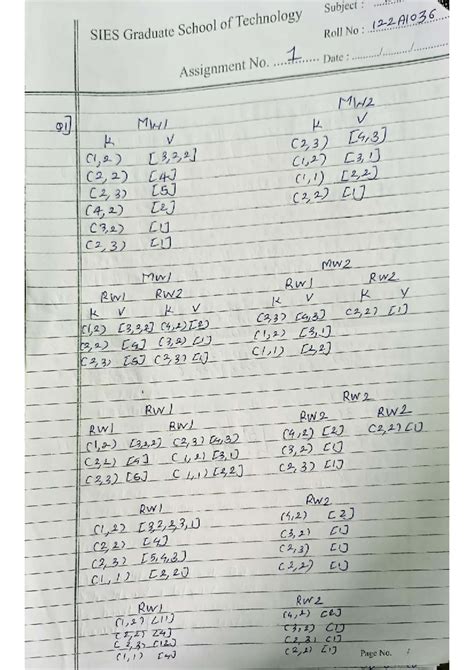 SIES Graduate School of Technology
Subject :
Roll No : 122A1036
Assignment No. 1 Date :
Q1] MW1 MW2
K V K V
(1,2) [3,2,2] (2,3) [4,3]
(2,2) [4] (1,2) [3,1]
(2,3) [5] (1,1) [2,2]
(4,2) [2] (2,2) [1]
(3,2) [1]
(2,3) [1]
MW1 MW2
RW1 RW2 RW1 RW2
K V K V K V K V
(1,2) [3,3,2] (4,2) [2] (2,3) [4,3] (2,2) [1]
(2,2) [4] (3,2) [1] (1,2) [3,1]
(2,3) [5] (2,3) [1] (1,1) [2,2]
RW1 RW2
RW1 RW1 RW2 RW2
(1,2) [3,2,2] (2,3) [4,3] (4,2) [2] (2,2) [1]
(2,2) [4] (1,2) [3,1] (3,2) [1]
(2,3) [5] (1,1) [2,2] (2,3) [1]
RW1 RW2
(1,2) [3,2,2,3,1] (4,2) [2]
(2,2) [4] (3,2) [1]
(2,3) [5,4,3] (2,3) [1]
(1,1) [2,2] (2,2) [1]
RW1 RW2
(1,2) [11] (4,2) [2]
(2,2) [4] (3,2) [1]
(2,3) [12] (2,3) [1]
(1,1) [4] (2,2) [1]
Page No. :